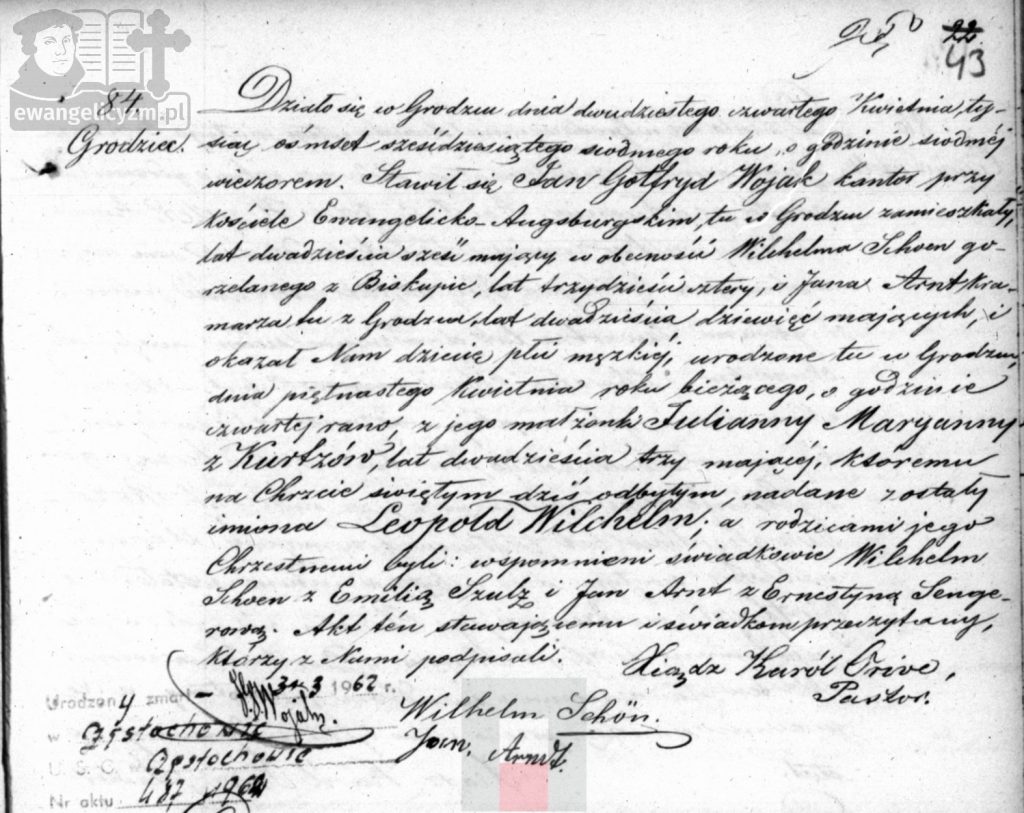 22
43
ewangelicyzm.pl
84.
Grodziec.
Działo się w Grodzcu dnia dwudziestego czwartego Kwietnia, ty-
siąc ośmset sześćdziesiątego siódmego roku, o godzinie siódméj
wieczorem. Stawił się Jan Gotfryd Wojak kantor przy
kościele Ewangelicko-Augsburgskim, tu w Grodzcu zamieszkały,
lat dwadzieścia sześć mający, w obecności Wilchelma Schoen go-
rzelanego z Biskupic, lat trzydzieści cztery, i Jana Arnt kra-
marza tu z Grodzca, lat dwadzieścia dziewięć mających, i
okazał Nam dziecię płci męzkiéj, urodzone tu w Grodzcu,
dnia piętnastego Kwietnia roku bieżącego, o godzinie
czwartej rano, z jego małżonki Julianny Maryanny
z Kurtzów, lat dwadzieścia trzy mającéj, któremu
na Chrzcie świętym dziś odbytym, nadane zostały
imiona Leopold Wilchelm. a rodzicami jego
Chrzestnemi byli: wspomnieni świadkowie Wilchelm
Schoen z Emilią Szulz i Jan Arnt z Ernestyną Senge-
rową. Akt ten stawającemu i świadkom przeczytany,
którzy z Nami podpisali.
Xiądz Karól Orive,
Pastor.
Wilhelm Schön.
Jan. Arndt.
Wojak.
Urodzony zmarł 31 3 1962 r.
w Częstochowie
U. S. C. w Częstochowie
Nr aktu 487 1962